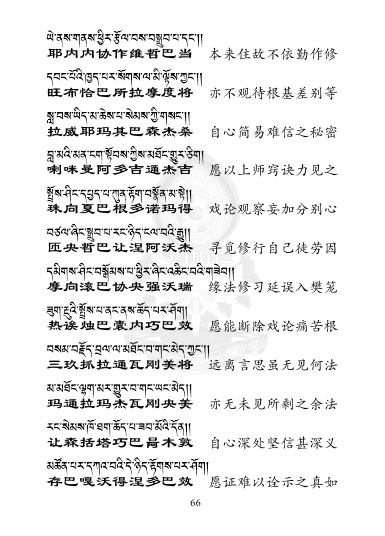 ཡེ་ནས་གནས་ཕྱིར་རྩོལ་བས་བསྒྲུབ་པ་དང་།།
耶内内协作维哲巴当 本来住故不依勤作修
དབང་པོའི་ཁྱད་པར་སོགས་ལ་མི་ལྟོས་ཀྱང་།།
旺布恰巴所拉摩度将 亦不观待根基差别等
སླ་བས་ཡིད་མ་ཆེས་པ་སེམས་ཀྱི་གསང་།།
拉威耶玛其巴森杰桑 自心简易难信之秘密
བླ་མའི་མན་ངག་སྟོབས་ཀྱིས་མཐོང་གྱུར་ཅིག།
喇咪曼阿多吉通杰吉 愿以上师窍诀力见之
སྤྲོས་ཤིང་དཔྱད་པ་ཀུན་རྟོག་བསྣན་མ་སྟེ།།
珠向夏巴根多诺玛得 戏论观察妄加分别心
བཙལ་ཞིང་སྒྲུབ་པ་རང་ཉིད་ངལ་བའི་རྒྱུ།།
匝央哲巴让涅阿沃杰 寻觅修行自己徒劳因
དམིགས་ཤིང་བསྒོམས་པ་ཕྱིར་ཞིང་འཆིང་བའི་གཟེབ།།
摩向滚巴协央强沃瑞 缘法修习延误入樊笼
ཟུག་རྔུའི་སྤྲོས་པ་ནང་ནས་ཆོད་པར་ཤོག།
热诶烛巴囊内巧巴效 愿能断除戏论痛苦根
བསམ་བརྗོད་བྲལ་ལ་མཐོང་བ་གང་མེད་ཀྱང་།།
三玖抓拉通瓦刚美将 远离言思虽无见何法
མ་མཐོང་ལྷག་མར་གྱུར་བ་གང་ཡང་མེད།།
玛通拉玛杰瓦刚央美 亦无未见所剩之余法
རང་སེམས་ཁོ་ཐག་ཆོད་པ་ཟབ་མོའི་དོན།།
让森括塔巧巴昌木敦 自心深处坚信甚深义
མཚོན་པར་དཀའ་བའི་དེ་ཉིད་རྟོགས་པར་ཤོག།
存巴嘎沃得涅多巴效 愿证难以诠示之真如
66